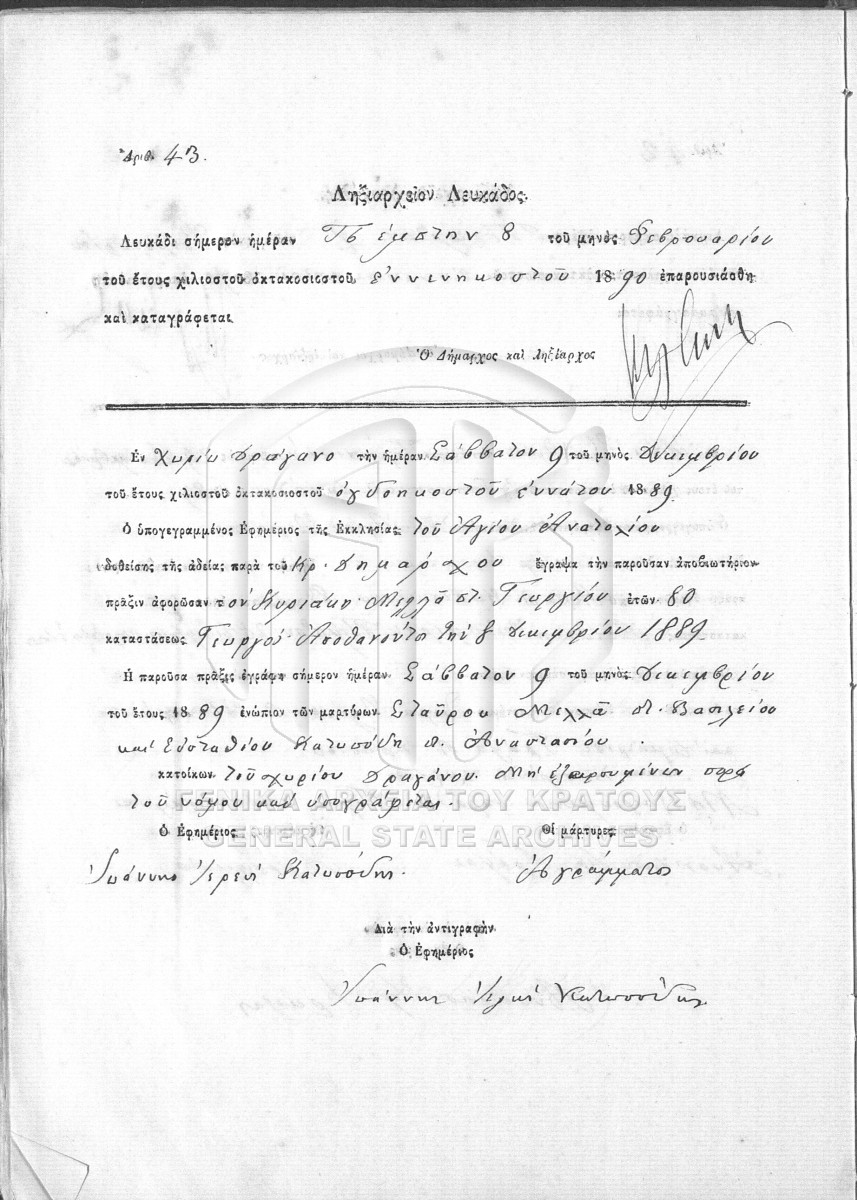 Ἀριθ. 43.
Ληξιαρχεῖον Λευκάδος.
Λευκάδι σήμερον ἡμέραν Πέμπτην 8 τοῦ μηνὸς Φεβρουαρίου
τοῦ ἔτους χιλιοστοῦ ὀκτακοσιοστοῦ ἐννενηκοστοῦ 1890 ἐπαρουσιάσθη
καὶ καταγράφεται
Ὁ Δήμαρχος καὶ Ληξίαρχος
Ἐν Χωρίῳ Δράγανο τὴν ἡμέραν Σάββατον 9 τοῦ μηνὸς Δεκεμβρίου
τοῦ ἔτους χιλιοστοῦ ὀκτακοσιοστοῦ ὀγδοηκοστοῦ ἐννάτου 1889
Ὁ ὑπογεγραμμένος Ἐφημέριος τῆς Ἐκκλησίας τοῦ Ἁγίου
δοθείσης τῆς ἀδείας παρὰ τοῦ Κρ. Δημάρχου ἔγραψα τὴν παροῦσαν ἀποβιωτήριον
πρᾶξιν ἀφορῶσαν τὸν Κυριάκη Μελλᾶ π. Γεωργίου ἐτῶν 80
καταστάσεως Γεωργοῦ. Ἀποθανόντα τὴν 8 Δεκεμβρίου 1889
Ἡ παροῦσα πρᾶξις ἐγράφη σήμερον ἡμέραν Σάββατον 9 τοῦ μηνὸς Δεκεμβρίου
τοῦ ἔτους 1889 ἐνώπιον τῶν μαρτύρων Σταύρου Μελλᾶ π. Βασιλείου
καὶ Εὐσταθίου Κατωπόδη π. Ἀναστασίου.
κατοίκων τοῦ χωρίου Δραγάνου. Μὴ ἐξαιρουμένων παρὰ
τοῦ νόμου καὶ ὑπογράφεται.
ΓΕΝΙΚΑ ΑΡΧΕΙΑ ΤΟΥ ΚΡΑΤΟΥΣ
GENERAL STATE ARCHIVES
Ὁ Ἐφημέριος Οἱ μάρτυρες
Ἰωάννης Ἱερεὺς Κατωπόδης. Ἀγράμματοι
Διὰ τὴν ἀντιγραφὴν
Ὁ Ἐφημέριος
Ἰωάννης Ἱερεὺς Κατωπόδης